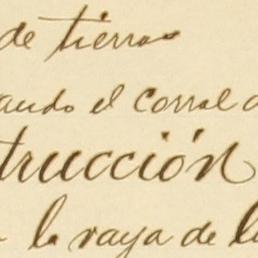 de tierras
ando el corral d
trucción
la raya de l